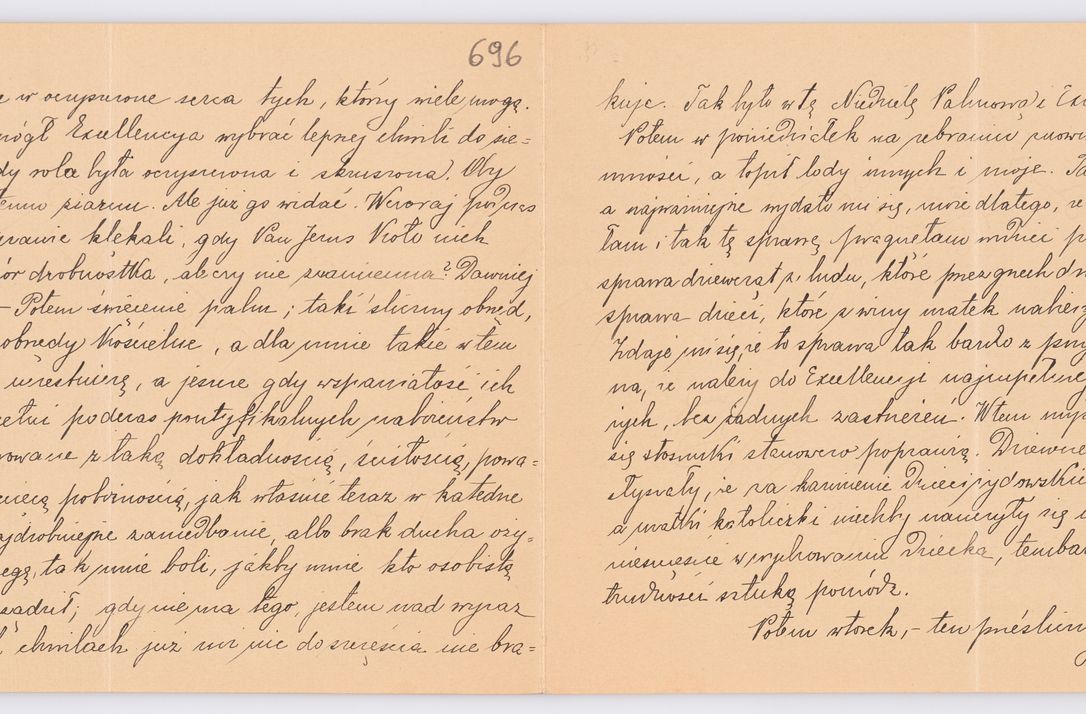 696
w oczyszczone serca tych, którzy wiele mogą.
mógł Excellencya wybrać lepszej chwili do sie=
rola była oczyszczona i skruszona. Oby
ziarnu. Ale już go widać. Wczoraj podczas
klękali, gdy Pan Jezus koło nich
drobnostka, ale czy nie znamienna? Dawniej
– Potem święcenie palm; taki śliczny obrzęd,
obrzędy Kościelne, a dla mnie takie w tem
uczestniczę, a jeszcze gdy wspaniałość ich
podczas pontyfikalnych nabożeństw
z taką dokładnością, ścisłością, powa=
pobożnością, jak właśnie teraz w katedrze
zaniedbanie, albo brak ducha oży-
tak mnie boli, jakby mnie kto osobistą
gdy nie ma tego, jestem nad wyraz
chwilach już mi nic do szczęścia nie bra=
kuje. Tak było w tę Niedzielę Palmową i
Potem w poniedziałek na zebraniu znowu
mności, a topił lody innych i moje.
a najważniejsze wydało mi się, może dlatego, że
łam i tak tę sprawę pragnęłam
sprawa dziewcząt z ludu, które przez grzech
sprawa dzieci, które z winy matek
Zdaje mi się, że to sprawa tak bardzo z
na, że należy do Excellencji najzupełniej
nych, bez żadnych zastrzeżeń. W tem
się stosunki stanowczo poprawią.
słyszały, że za karmienie Dzieci żydowskich
a matki katoliczki niechby nauczyły się
w wychowaniu Dziecka,
trudności sztuką pomódz.
Potem wtorek, – ten prześliczny